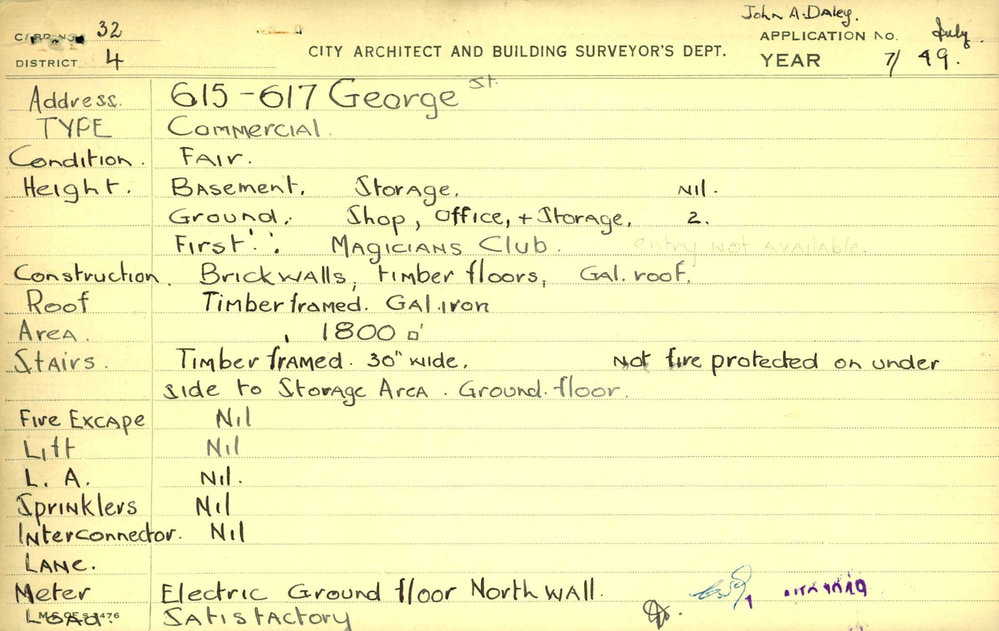 John A. Daley.
CARD NO. 32
APPLICATION NO.
July
DISTRICT 4
CITY ARCHITECT AND BUILDING SURVEYOR'S DEPT.
YEAR 7/ 49.
Address. 615-617 George St.
TYPE Commercial.
Condition. Fair.
Height. Basement. Storage. Nil.
Ground. Shop, Office, + Storage. 2.
First. Magicians Club. Entry not available.
Construction. Brick walls, timber floors, Gal. roof.
Roof Timber framed. Gal. iron
Area. 1800 □'
Stairs. Timber framed. 30" wide. Not fire protected on under
side to Storage Area. Ground floor.
Fire Excape Nil
Lift Nil
L. A. Nil.
Sprinklers Nil
Interconnector. Nil
Lane.
Meter Electric Ground floor North wall.
Load Satisfactory